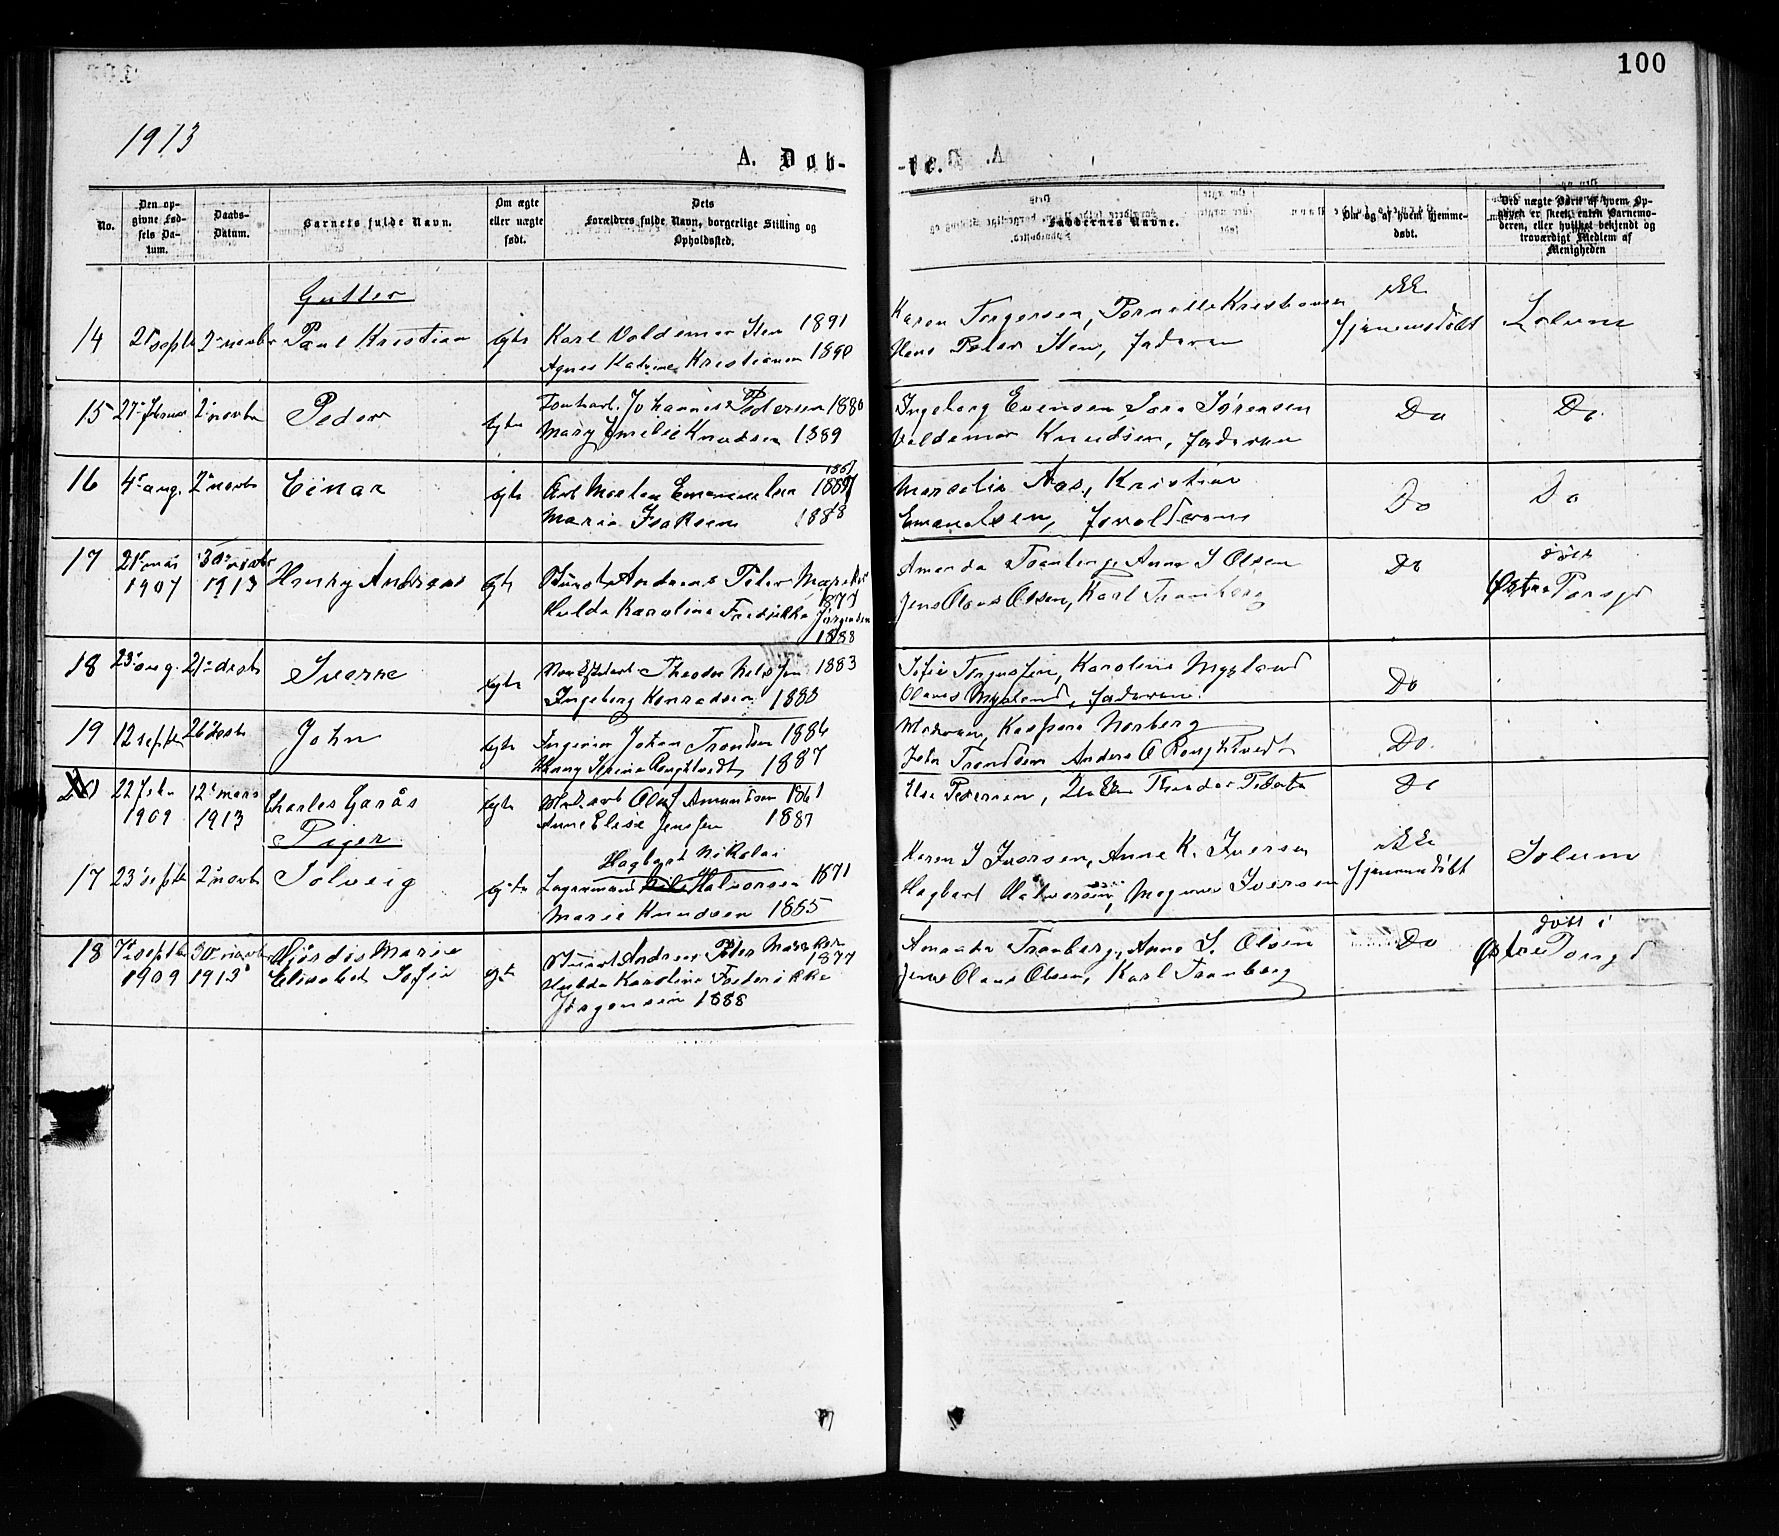 100
1913
A. Døb-
-te.
No.
Den op-
givne Fød-
sels Da-
tum.
Daabs-
Datum.
Barnets fulde Navn.
Om ægte
eller uægte
født.
Dets
Forældres fulde Navn, borgerlige Stilling og
Opholdssted.
Faddernes Navne.
Om og af hvem hjemme-
døbt.
Ved uægte Børn af hvem Op-
gaven er skeet, enten Barnemo-
deren, eller hvilket bekjendt og
troværdigt Medlem af
Menigheden
Gutter
14 21 septe 2 novbr Paul Kristian ægte Karl Valdemar Sten 1891
Agnes Katrine Kristiansen 1890
Karen Torgersen, Pernille Kristiansen
Hans Peter Sten, faderen
ikke
hjemmedøbt
Solum
15 27 februar 2 novbr Peder ægte Johannes Pedersen 1880
Mary Emelie Knudsen 1889
Ingeborg Evensen Sara Sørensen
Valdemar Knudsen, faderen
Do Do
16 4 aug. 2 novbr Einar ægte Morten Emanuelsen
Marie Isaksen 1888
Aas, Kristian
Emanuelsen, forældrene
Do Do
17 21 mai
1907
30 novbr
1913
Henry Andreas ægte Andreas Peter
1877
Hulda Karoline Fredrikke Jørgensen
1888
Amanda Tranberg, Anne S Olsen
Jens Olaus Olsen, Karl Tranberg
Do
døbt
Østre Porsgr
18 23 aug. 21 desbr Sverre ægte Theodor Nilssen 1883
Ingeborg Konradsen 1883
Sofie Karoline Mygland
Olaves Mygland, faderen.
Do
19 12 septe 26 desbr John ægte Johan Trondsen 1886
Serine 1887
Moderen, Kaspara Norberg
John Trondsen Anders O
Do.
20 22 febr
1909
12 mars
1913
Charles Garås ægte Olaf Amundsen 1861
Anne Elise Jenssen 1887
Pedersen, Theodor
Do
Piger
17 23 septe 2 novbr Solveig ægte Hagbart Nikolai
Halvorsen 1871
Marie Knudsen 1885
Karen S Iversen, Anne K. Iversen
Hagbart Halvorsen, Magnus Iversen
ikke
hjemmedøbt
Solum
18 7 septe
1909
30 novbr
1913
Hjørdis Marie
Elisabet Sofie
ægte Andreas Peter
1877
Hulda Karoline Frederikke
Jørgensen 1888
Amanda Tranberg, Anne S. Olsen
Jens Olaus Olsen, Karl Tranberg
Do
døbt i
Østre Porsgr